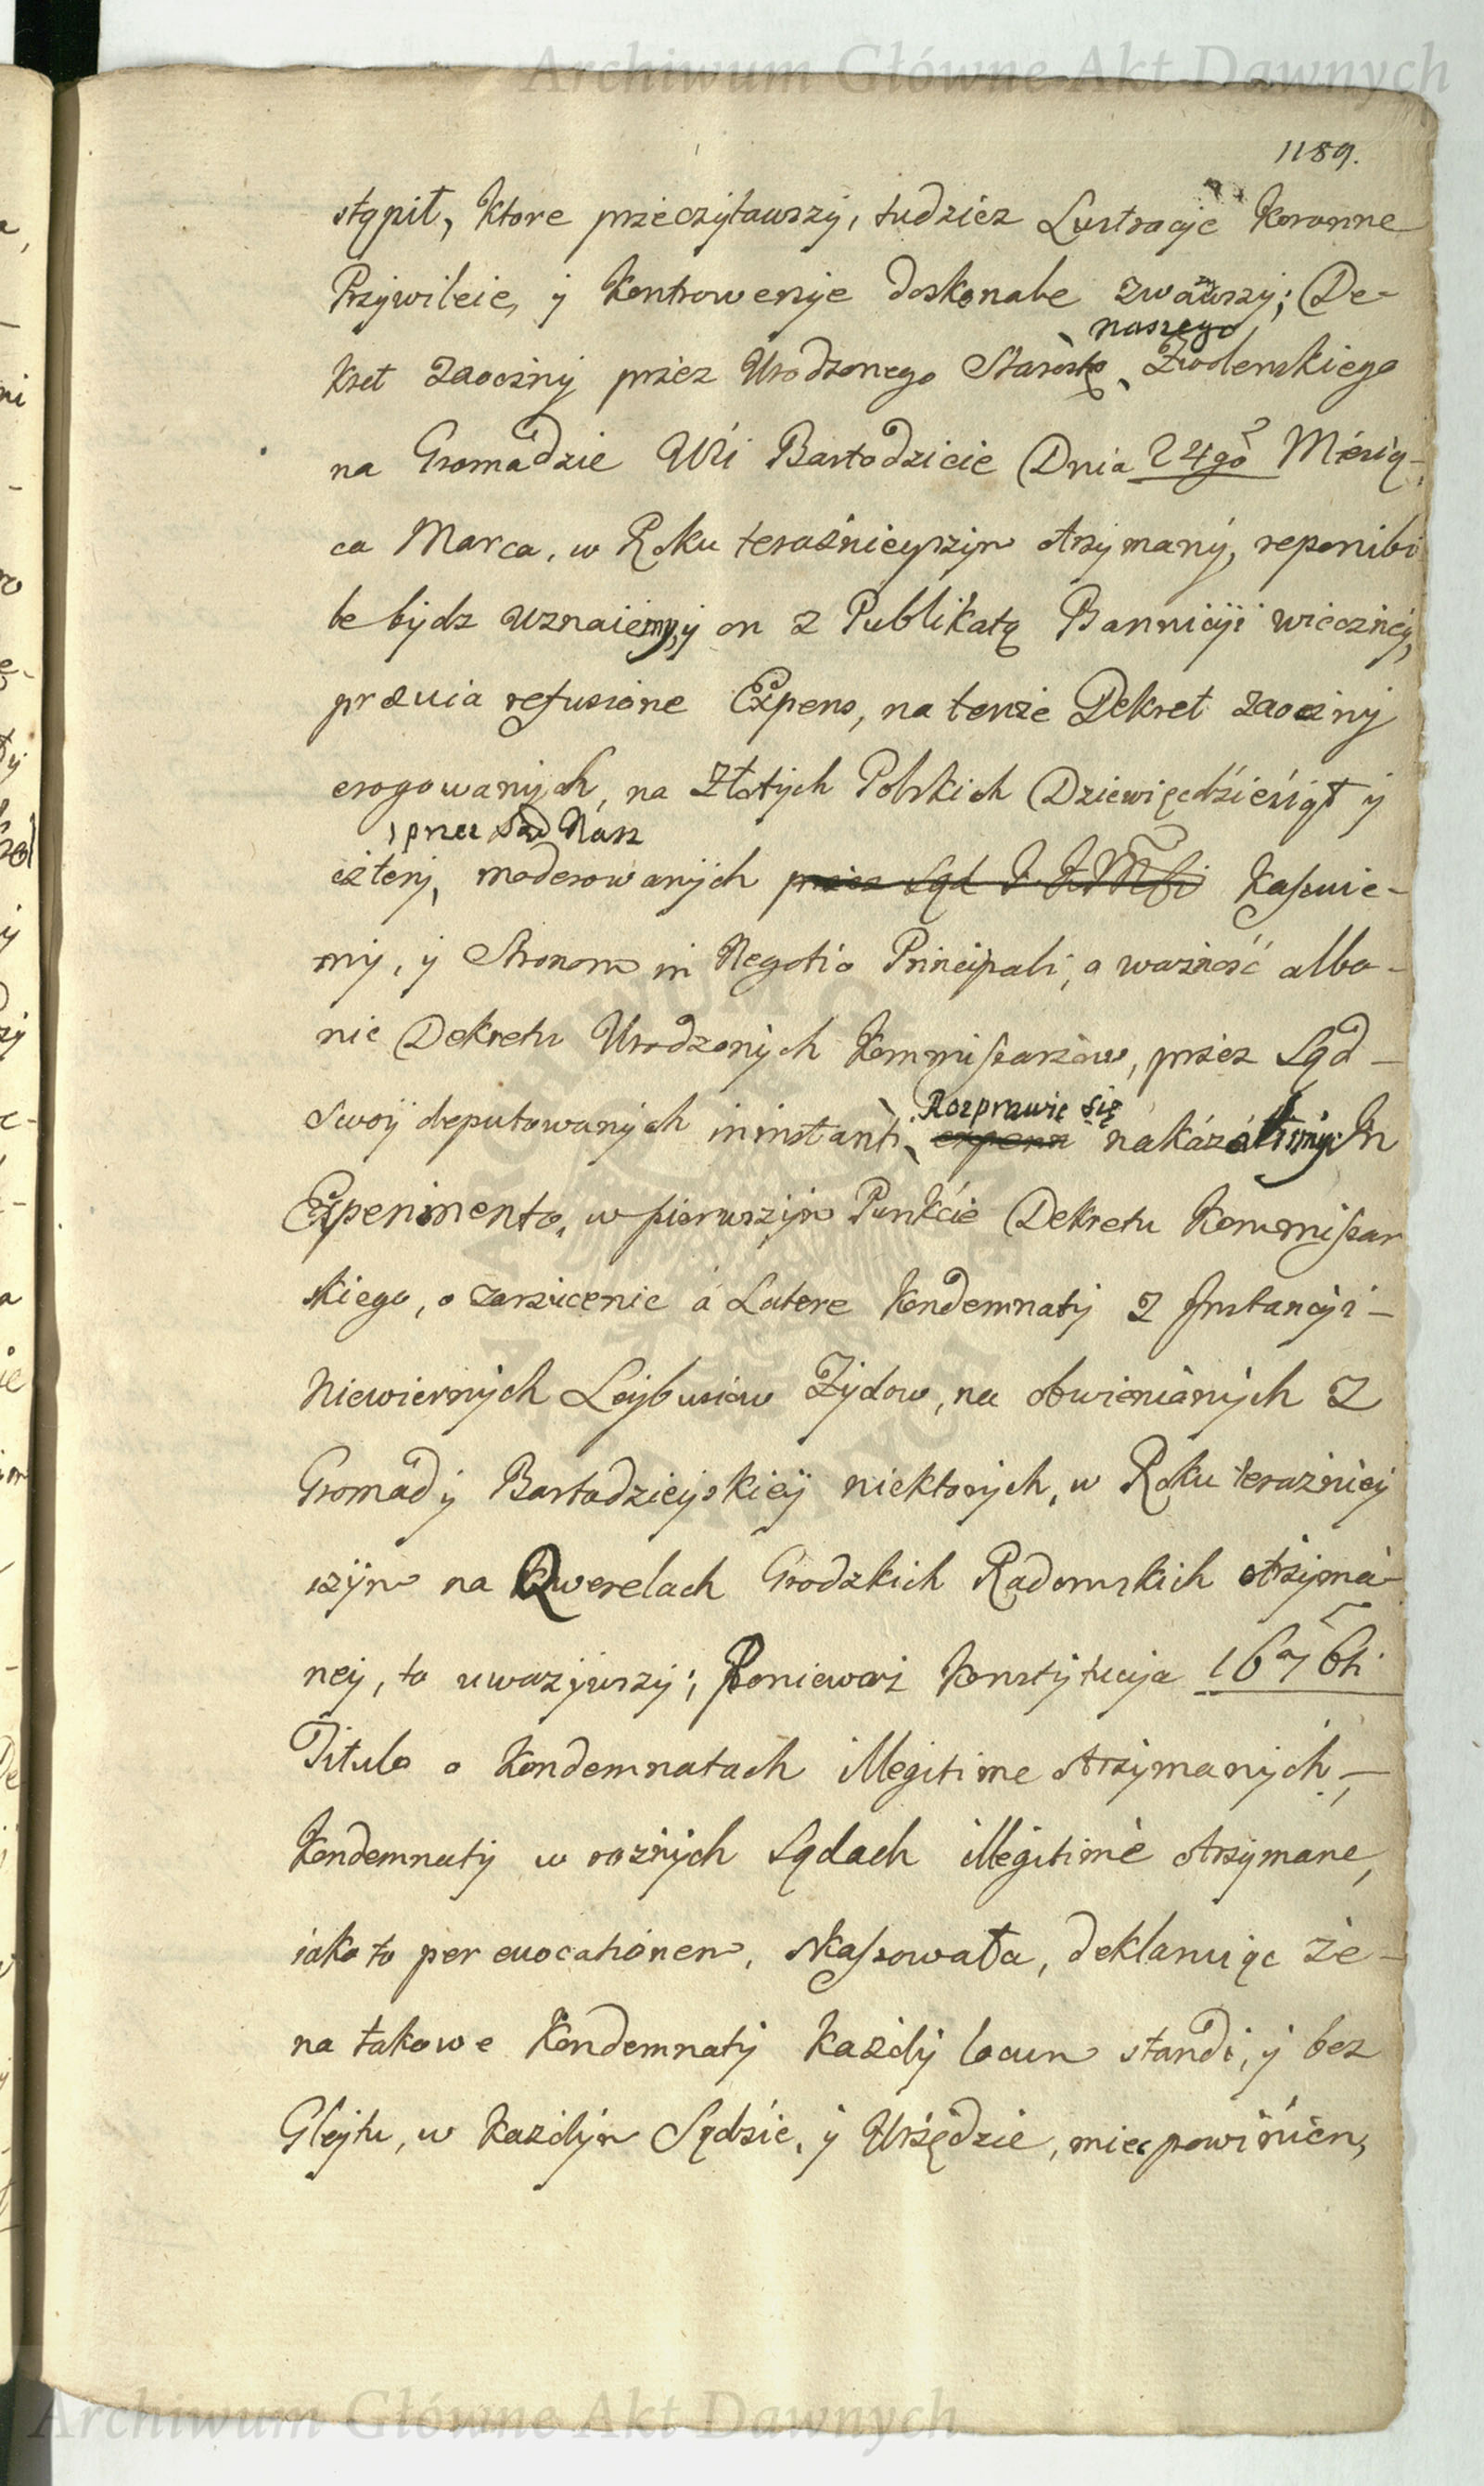 Archiwum Główne Akt Dawnych
1189.
stąpił, Ktore przeczytawszy, tudziez Lustracye Koronne
Przywileie, y Kontrowersye doskonale zwazywszy; De-
naszego
kret zaoczny przez Urodzonego Starostę Zwolenskiego
na Gromadzie Wsi Bartodzieie Dnia 24go Miesią-
ca Marca, w Roku teraźnieyszym otrzymany, reponibi
le bydz uznaiemy, y on z Publikatą Bannicyi wieczney,
prævia refusione Expens, na tenże Dekret zaoczny
erogowanych, na Złotych Polskich Dziewięćdzieśiąt y
przez Sąd Nasz
cztery, moderowanych przez Sąd J. K. Mśći Kassuie-
my, y Stronom in Negotio Principali, o ważność albo-
nie Dekretu Urodzonych Kommissarzow, przez Sąd
Rozprawic się
swoy deputowanych in instanti, experir nakazaliśmy: In
Experimento, w pierwszym Punkćie Dekretu Kommissar
skiego, o zarzucenie á Latere Kondemnaty z Instancyi
Niewiernych Leybusiow Żydow, na obwinianych z
Gromady Bartodzieyskiey niektorych, w Roku teraźniey
szym na Qwerelach Grodzkich Radomskich otrzyma-
ney, to uwazywszy; Poniewasz Konstytucya 1676ti
Titulo o Kondemnatach illegitime otrzymanych,
Kondemnaty w rożnych Sądach illegitimè otrzymane,
iako to per evocationem, skassowała, deklaruiąc że-
na takowe Kondemnaty każdy locum standi, y bez
Gleytu, w każdym Sądzie, y Urzędzie, miec powinien,
Archiwum Główne Akt Dawnych